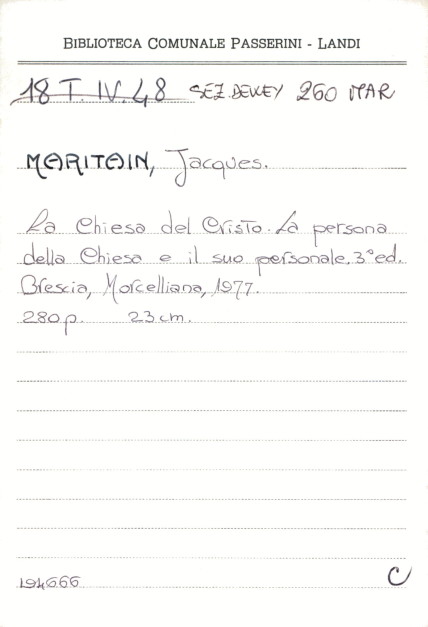 BIBLIOTECA COMUNALE PASSERINI - LANDI
18 T. IV. 48 SEZ. DEWEY 260 MAR
MARITAIN, Jacques.
La Chiesa del Cristo. La persona
della Chiesa e il suo personale. 3° ed.
Brescia, Morcelliana, 1977.
280 p. 23 cm.
194666 C